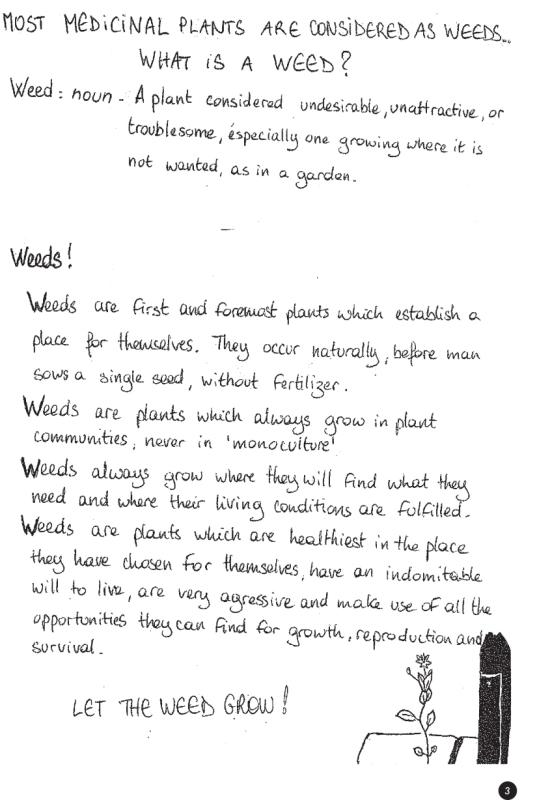 MOST MEDICINAL PLANTS ARE CONSIDERED AS WEEDS...
WHAT IS A WEED?
Weed: noun - A plant considered undesirable, unattractive, or
troublesome, éspecially one growing where it is
not wanted, as in a garden.
Weeds!
Weeds are first and foremost plants which establish a
place for themselves. They occur naturally, before man
sows a single seed, without fertilizer.
Weeds are plants which always grow in plant
communities, never in 'monoculture'
Weeds always grow where they will find what they
need and where their living conditions are fulfilled.
Weeds are plants which are healthiest in the place
they have chosen for themselves, have an indomitable
will to live, are very agressive and make use of all the
opportunities they can find for growth, reproduction and
survival.
LET THE WEED GROW!
3